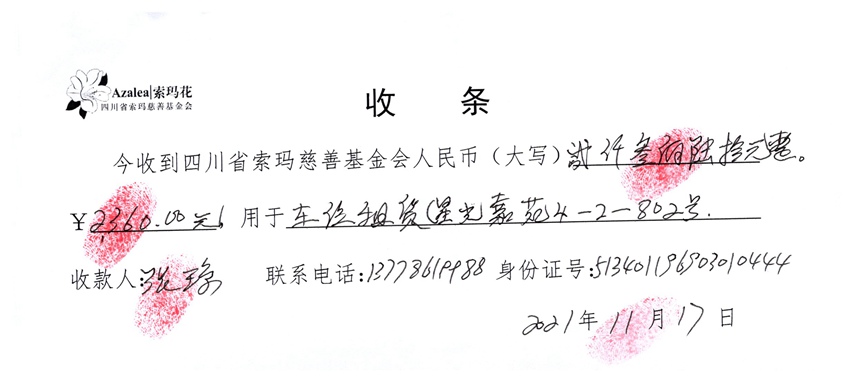 Azalea|索玛花
四川省索玛慈善基金会
收 条
今收到四川省索玛慈善基金会人民币（大写）贰仟叁佰陆拾元整。
¥2360.00元，用于车位租赁(星光嘉苑4-2-802号.
收款人:张琼 联系电话:13778619988 身份证号:513401196903010444
2021年11月17日